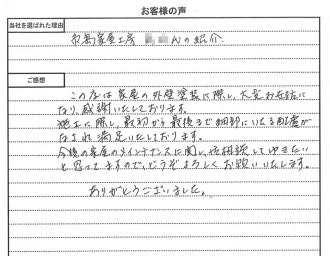 お客様の声
当社を選ばれた理由
家屋工房 さんの紹介
ご感想
この度は家屋の外壁塗装に際し、大変お世話に
なり、感謝いたしております。
施工に際し、最初から最後まで細部にいたる配慮が
なされ満足いたしております。
今後の家屋のメインテナンスに関し、相談してゆきたい
と思ってますので、どうぞよろしくお願いいたします。
ありがとうございました。